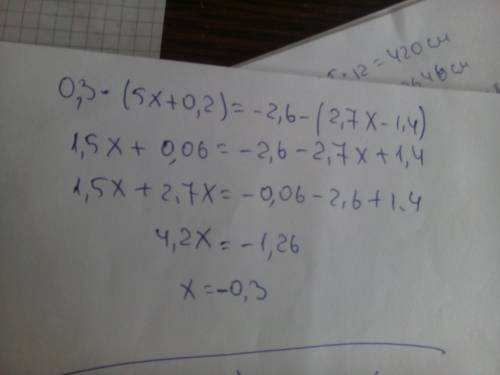 5·12=420см
0,3·(5x+0,2)=-2,6-(2,7x-1,4)
1,5x+0,06=-2,6-2,7x+1,4
1,5x+2,7x=-0,06-2,6+1.4
4,2x=-1,26
x=-0,3